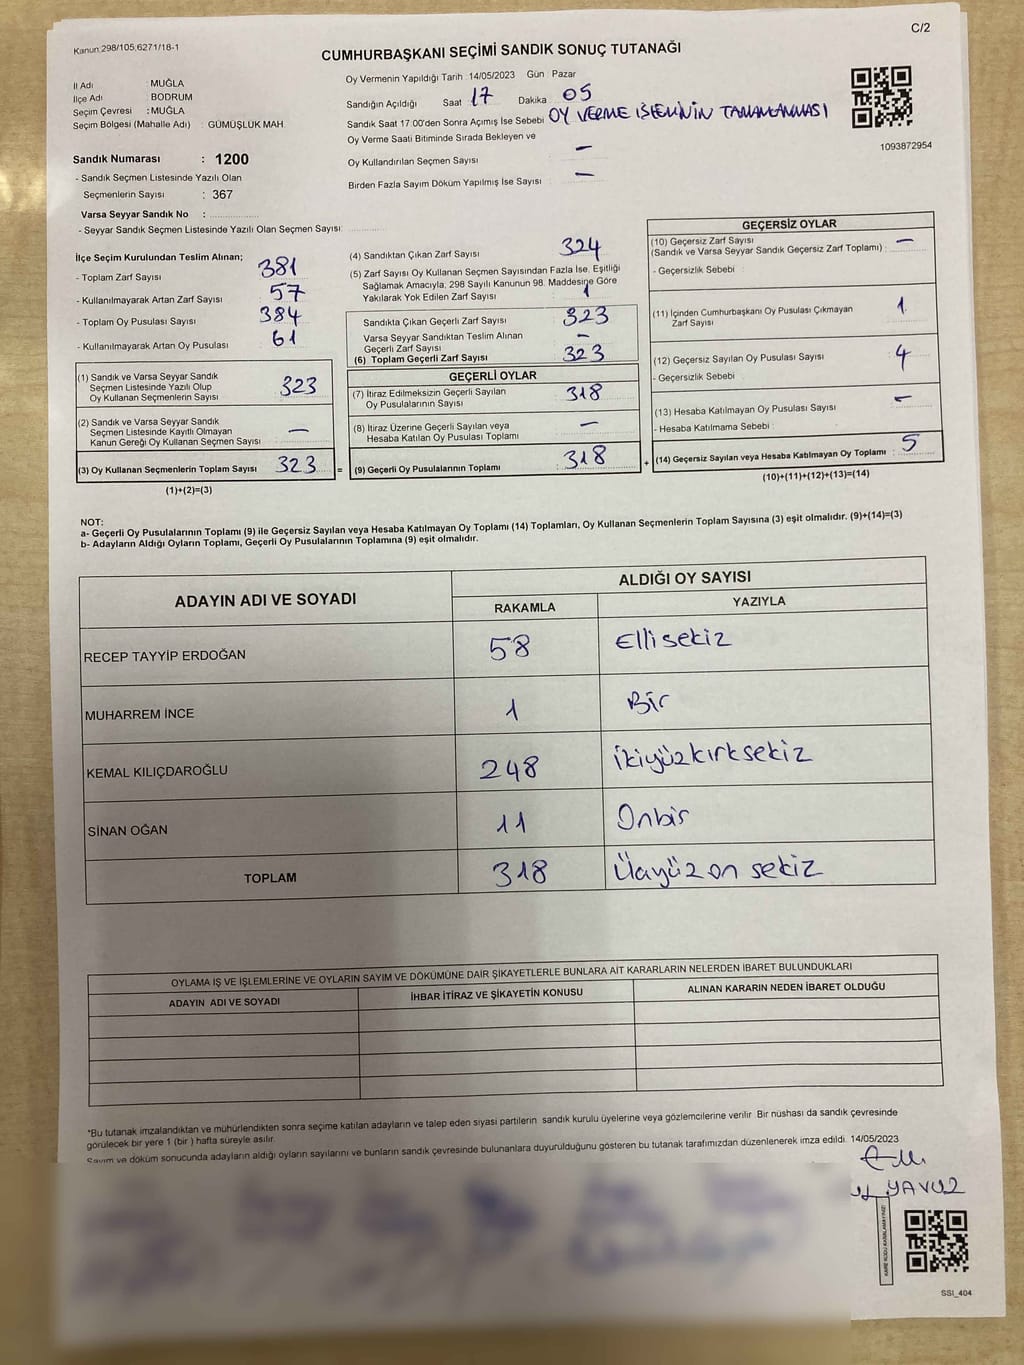 Kanun:298/105,6271/18-1
C/2
CUMHURBAŞKANI SEÇİMİ SANDIK SONUÇ TUTANAĞI
İl Adı : MUĞLA
İlçe Adı : BODRUM
Seçim Çevresi : MUĞLA
Seçim Bölgesi (Mahalle Adı) : GÜMÜŞLÜK MAH.
Oy Vermenin Yapıldığı Tarih :14/05/2023 Gün : Pazar
Sandığın Açıldığı Saat 17 Dakika 05
Sandık Saat 17:00'den Sonra Açımış İse Sebebi OY VERME İŞLEMİNİN TAMAMLANMASI
Oy Verme Saati Bitiminde Sırada Bekleyen ve
Oy Kullandırılan Seçmen Sayısı –
Birden Fazla Sayım Döküm Yapılmış İse Sayısı –
1093872954
Sandık Numarası : 1200
- Sandık Seçmen Listesinde Yazılı Olan
Seçmenlerin Sayısı : 367
Varsa Seyyar Sandık No :
- Seyyar Sandık Seçmen Listesinde Yazılı Olan Seçmen Sayısı:
İlçe Seçim Kurulundan Teslim Alınan;
- Toplam Zarf Sayısı 381
- Kullanılmayarak Artan Zarf Sayısı 57
- Toplam Oy Pusulası Sayısı 384
- Kullanılmayarak Artan Oy Pusulası 61
(1) Sandık ve Varsa Seyyar Sandık
Seçmen Listesinde Yazılı Olup
Oy Kullanan Seçmenlerin Sayısı 323
(2) Sandık ve Varsa Seyyar Sandık
Seçmen Listesinde Kayıtlı Olmayan
Kanun Gereği Oy Kullanan Seçmen Sayısı –
(3) Oy Kullanan Seçmenlerin Toplam Sayısı 323 =
(1)+(2)=(3)
(4) Sandıktan Çıkan Zarf Sayısı 324
(5) Zarf Sayısı Oy Kullanan Seçmen Sayısından Fazla İse, Eşitliği
Sağlamak Amacıyla, 298 Sayılı Kanunun 98. Maddesine Göre
Yakılarak Yok Edilen Zarf Sayısı 1
Sandıkta Çıkan Geçerli Zarf Sayısı 323
Varsa Seyyar Sandıktan Teslim Alınan
Geçerli Zarf Sayısı –
(6) Toplam Geçerli Zarf Sayısı 323
GEÇERLİ OYLAR
(7) İtiraz Edilmeksizin Geçerli Sayılan
Oy Pusulalarının Sayısı 318
(8) İtiraz Üzerine Geçerli Sayılan veya
Hesaba Katılan Oy Pusulası Toplamı –
(9) Geçerli Oy Pusulalarının Toplamı 318 +
GEÇERSİZ OYLAR
(10) Geçersiz Zarf Sayısı
(Sandık ve Varsa Seyyar Sandık Geçersiz Zarf Toplamı) : –
- Geçersizlik Sebebi :
(11) İçinden Cumhurbaşkanı Oy Pusulası Çıkmayan
Zarf Sayısı 1
(12) Geçersiz Sayılan Oy Pusulası Sayısı : 4
- Geçersizlik Sebebi :
(13) Hesaba Katılmayan Oy Pusulası Sayısı : –
- Hesaba Katılmama Sebebi :
(14) Geçersiz Sayılan veya Hesaba Katılmayan Oy Toplamı : 5
(10)+(11)+(12)+(13)=(14)
NOT:
a- Geçerli Oy Pusulalarının Toplamı (9) ile Geçersiz Sayılan veya Hesaba Katılmayan Oy Toplamı (14) Toplamları, Oy Kullanan Seçmenlerin Toplam Sayısına (3) eşit olmalıdır. (9)+(14)=(3)
b- Adayların Aldığı Oyların Toplamı, Geçerli Oy Pusulalarının Toplamına (9) eşit olmalıdır.
ADAYIN ADI VE SOYADI
ALDIĞI OY SAYISI
RAKAMLA YAZIYLA
RECEP TAYYİP ERDOĞAN 58 Ellisekiz
MUHARREM İNCE 1 Bir
KEMAL KILIÇDAROĞLU 248 İkiyüzkırksekiz
SİNAN OĞAN 11 Onbir
TOPLAM 318 Üçyüzon sekiz
OYLAMA İŞ VE İŞLEMLERİNE VE OYLARIN SAYIM VE DÖKÜMÜNE DAİR ŞİKAYETLERLE BUNLARA AİT KARARLARIN NELERDEN İBARET BULUNDUKLARI
ADAYIN ADI VE SOYADI İHBAR İTİRAZ VE ŞİKAYETİN KONUSU ALINAN KARARIN NEDEN İBARET OLDUĞU
*Bu tutanak imzalandıktan ve mühürlendikten sonra seçime katılan adayların ve talep eden siyasi partilerin sandık kurulu üyelerine veya gözlemcilerine verilir. Bir nüshası da sandık çevresinde
görülecek bir yere 1 (bir ) hafta süreyle asılır.
Sayım ve döküm sonucunda adayların aldığı oyların sayılarını ve bunların sandık çevresinde bulunanlara duyurulduğunu gösteren bu tutanak tarafımızdan düzenlenerek imza edildi. 14/05/2023
YAVUZ
KARE KODU KARALAMAYINIZ!
SSI_404